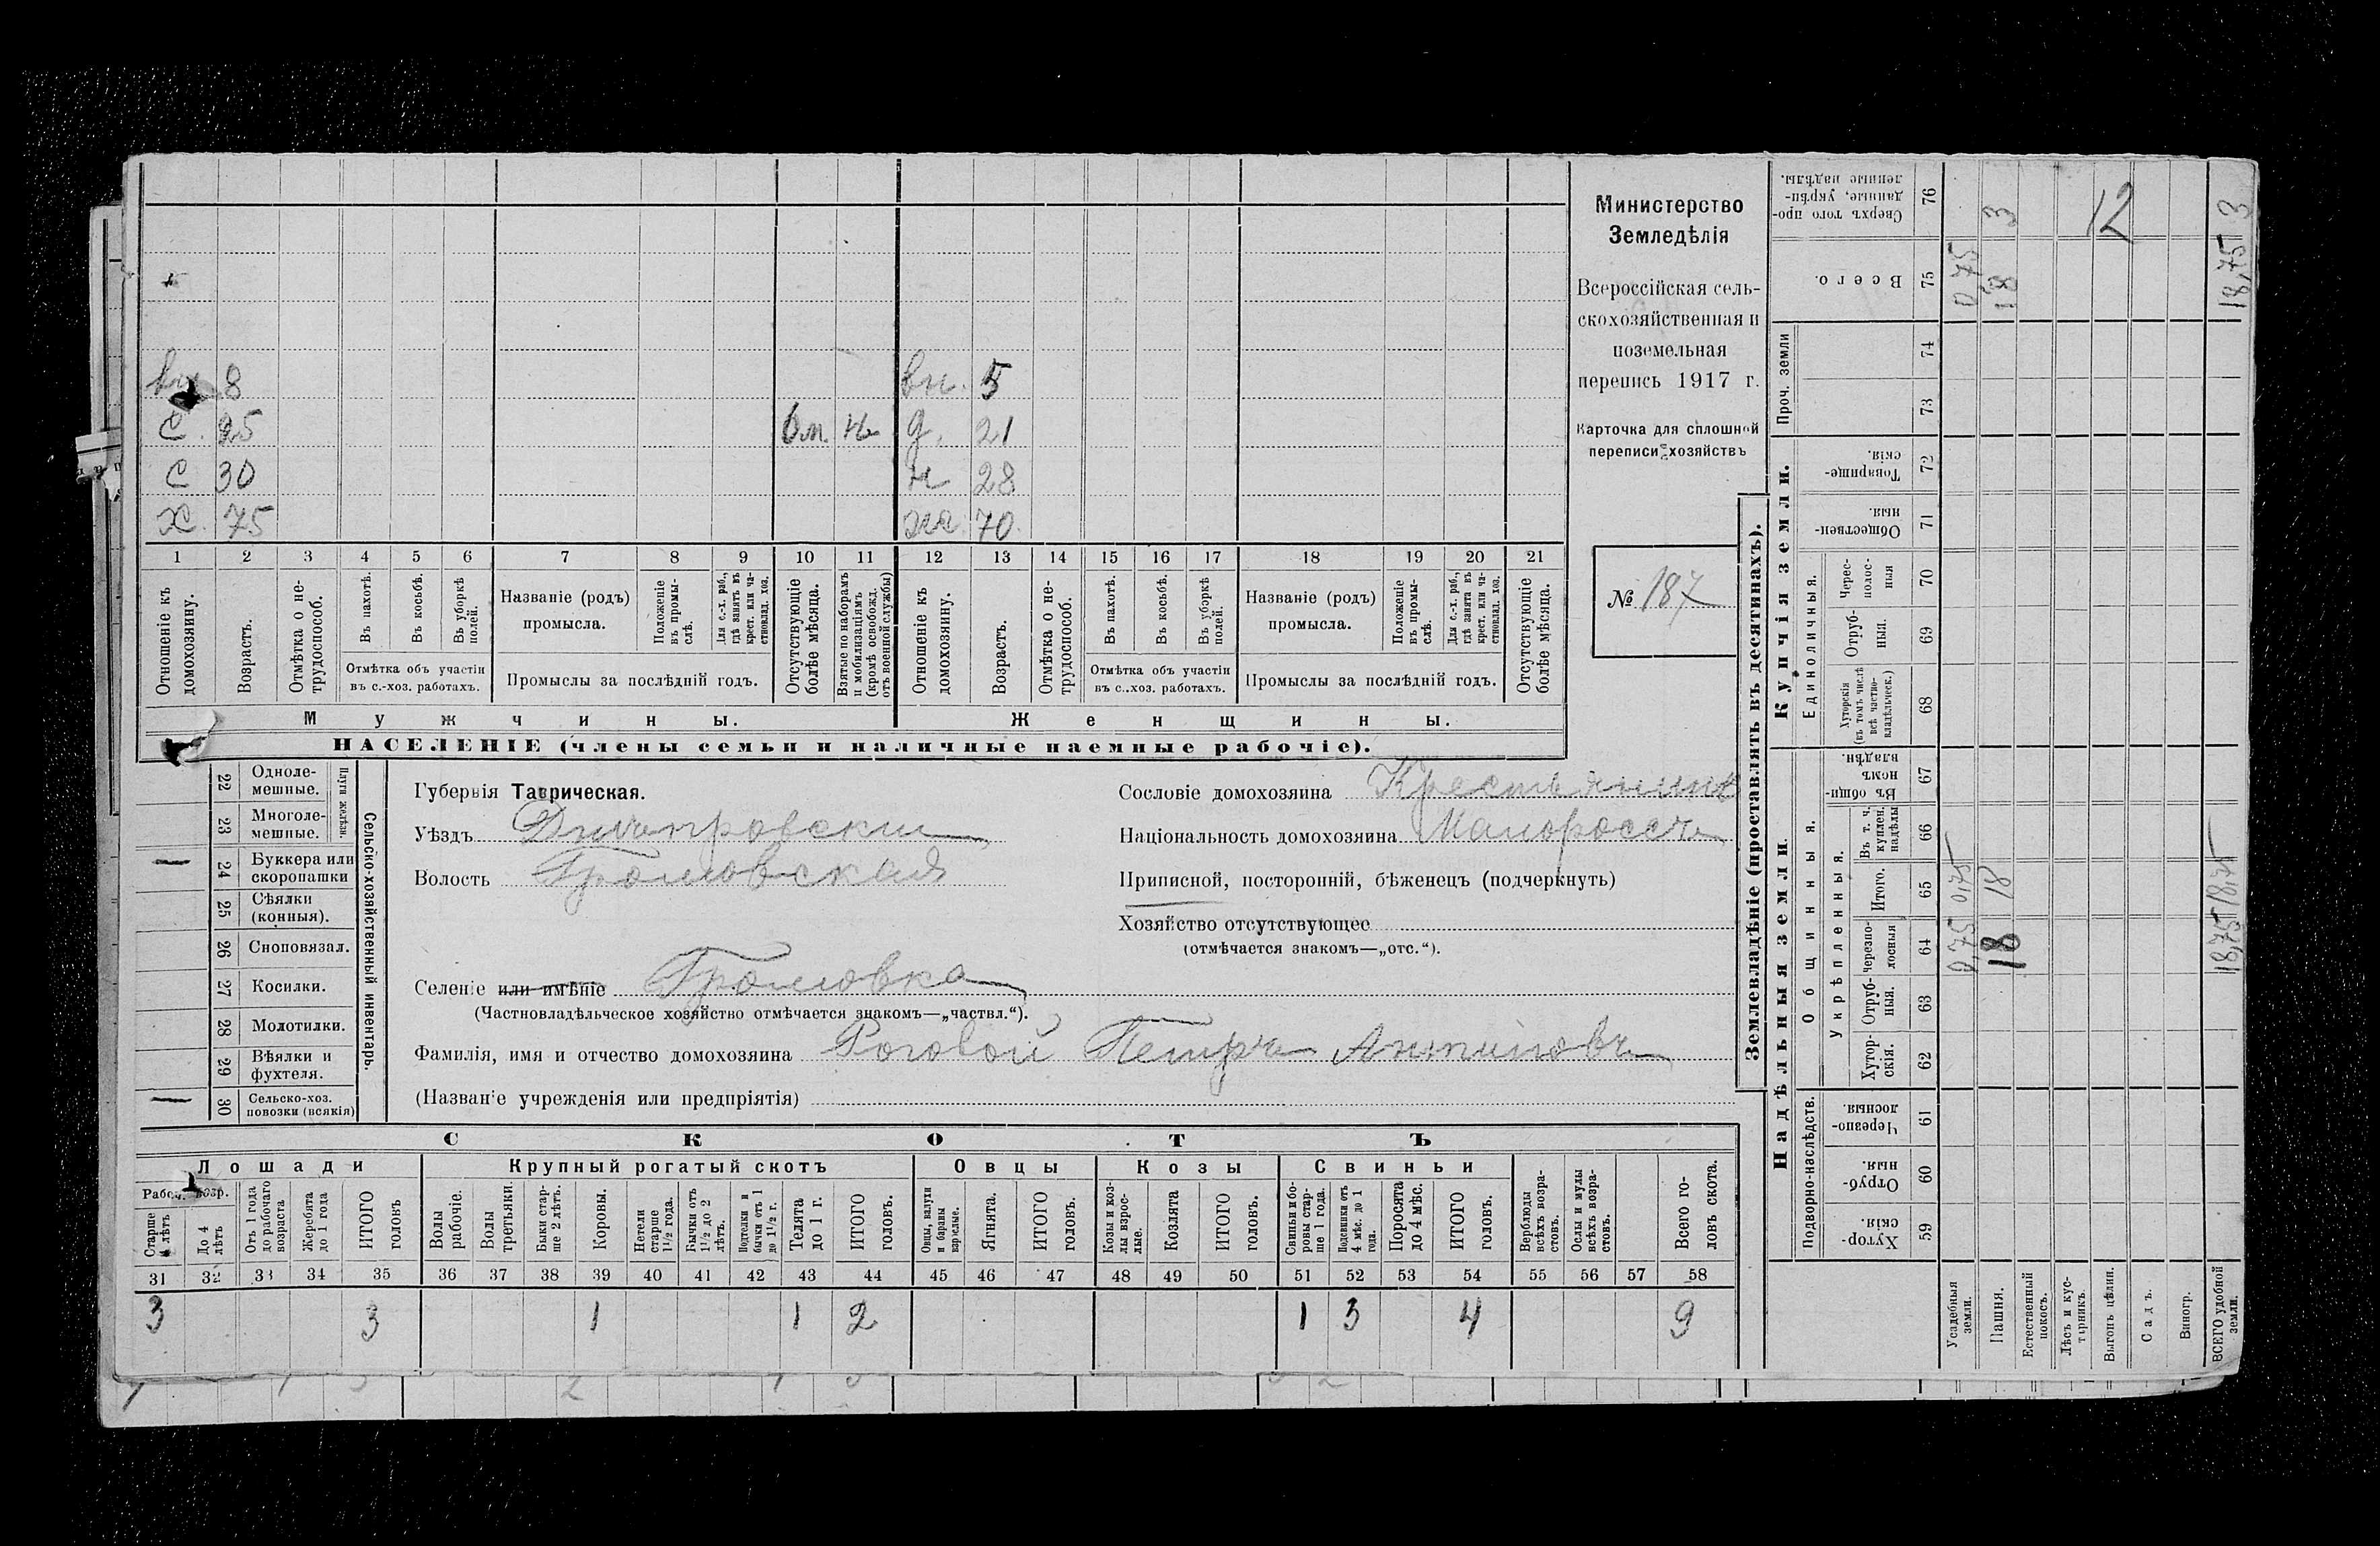 вн. 8 вн. 5
С. 25 6 м. на д. 21
С 30 н 28
Х. 75 жа 70
1 2 3 4 5 6 7 8 9 10 11 12 13 14 15 16 17 18 19 20 21
Отношеніе къ домохозяину.
Возрастъ.
Отмѣтка о не-трудоспособ.
Въ пахотѣ.
Въ косьбѣ.
Въ уборкѣ полей.
Отмѣтка объ участіи
въ с.-хоз. работахъ.
Названіе (родъ)
промысла.
Положеніе въ промы-слѣ.
Для с.-х. раб., гдѣ занятъ въ крест. или ча-стновлад. хоз.
Промыслы за послѣдній годъ.
Отсутствующіе болѣе мѣсяца.
Взятые по наборамъ и мобилизаціямъ (кромѣ освобожд. отъ военной службы)
Отношеніе къ домохозяину.
Возрастъ.
Отмѣтка о не-трудоспособ.
Въ пахотѣ.
Въ косьбѣ.
Въ уборкѣ полей.
Отмѣтка объ участіи
въ с..хоз. работахъ.
Названіе (родъ)
промысла.
Положеніе въ промы-слѣ.
Для с.-х. раб., гдѣ занята въ крест. или ча-стновлад. хоз.
Промыслы за послѣдній годъ.
Отсутствующіе болѣе мѣсяца.
Мужчины.
Женщины.
НАСЕЛЕНІЕ (члены семьи и наличные наемные рабочіе).
Министерство
Земледѣлія
Всероссійская сель-
скохозяйственная и
поземельная
перепись 1917 г.
Карточка для сплошной
переписи хозяйствъ
№ 187
22 Одноле-мешные.
23 Многоле-мешные.
Плуги желѣзн.
— 24 Буккера или скоропашки
25 Сѣялки (конныя).
26 Сноповязал.
27 Косилки.
28 Молотилки.
29 Вѣялки и фухтеля.
— 30 Сельско-хоз. повозки (всякія)
Сельско-хозяйственный инвентарь.
Губернія Таврическая.
Уѣздъ Днѣпровскій
Волость Громовская
Селеніе или имѣніе Громовка
(Частновладѣльческое хозяйство отмѣчается знакомъ—„частвл.“).
Фамилія, имя и отчество домохозяина Роговой Петръ Антиповъ
(Названіе учрежденія или предпріятія)
Сословіе домохозяина Крестьянинъ
Національность домохозяина Малороссъ
Приписной, посторонній, бѣженецъ (подчеркнуть)
Хозяйство отсутствующее
(отмѣчается знакомъ—„отс.“).
СКОТЪ
Лошади
Крупный рогатый скотъ
Овцы
Козы
Свиньи
Рабоч. возр.
Старше 4 лѣтъ
До 4 лѣтъ
Отъ 1 года до рабочаго возраста
Жеребята до 1 года
ИТОГО головъ
Волы рабочіе.
Волы третьяки.
Быки стар-ше 2 лѣтъ.
Коровы.
Нетели старше 1½ года.
Бычки отъ 1½ до 2 лѣтъ.
Подтелки и бычки отъ 1 до 1½ г.
Телята до 1 г.
ИТОГО головъ.
Овцы, валухи и бараны взрослые.
Ягнята.
ИТОГО головъ.
Козы и коз-лы взрос-лые.
Козлята
ИТОГО головъ.
Свиньи и бо-ровы стар-ше 1 года.
Подсвинки отъ 4 мѣс. до 1 года.
Поросята до 4 мѣс.
ИТОГО головъ.
Верблюды всѣхъ возра-стовъ.
Ослы и мулы всѣхъ возра-стовъ.
Всего го-ловъ скота.
31 32 33 34 35 36 37 38 39 40 41 42 43 44 45 46 47 48 49 50 51 52 53 54 55 56 57 58
3 3 1 1 2 1 3 4 9
Землевладѣніе (проставлять въ десятинахъ).
Надѣльныя земли.
Купчія земли.
Проч. земли
Подворно-наслѣдств.
Общинныя.
Укрѣпленныя.
Единоличныя.
Хутор-скія. 59
Отруб-ныя. 60
Черезпо-лосныя. 61
Хутор-скія. 62
Отруб-ныя. 63
черезпо-лосныя 64
Итого. 65
Въ т. ч. куплен. надѣлы 66
Въ общи-номъ владѣн. 67
Хуторскія (въ томъ числѣ всѣ частно-владѣльческ.) 68
Отруб-ныя. 69
Черес-полос-ныя 70
Обществен-ныя. 71
Товарище-скія. 72
73
74
Всего. 75
Сверхъ того про-данные, укрѣп-ленные надѣлы. 76
Усадебныя земли. 0,75 0,75 0,75
Пашня. 18 18 18 3
Естественный покосъ.
Лѣсъ и кус-тарникъ.
Выгонъ цѣлин. 12
Садъ.
Виногр.
ВСЕГО удобной земли. 18,75 18,75 18,75 3